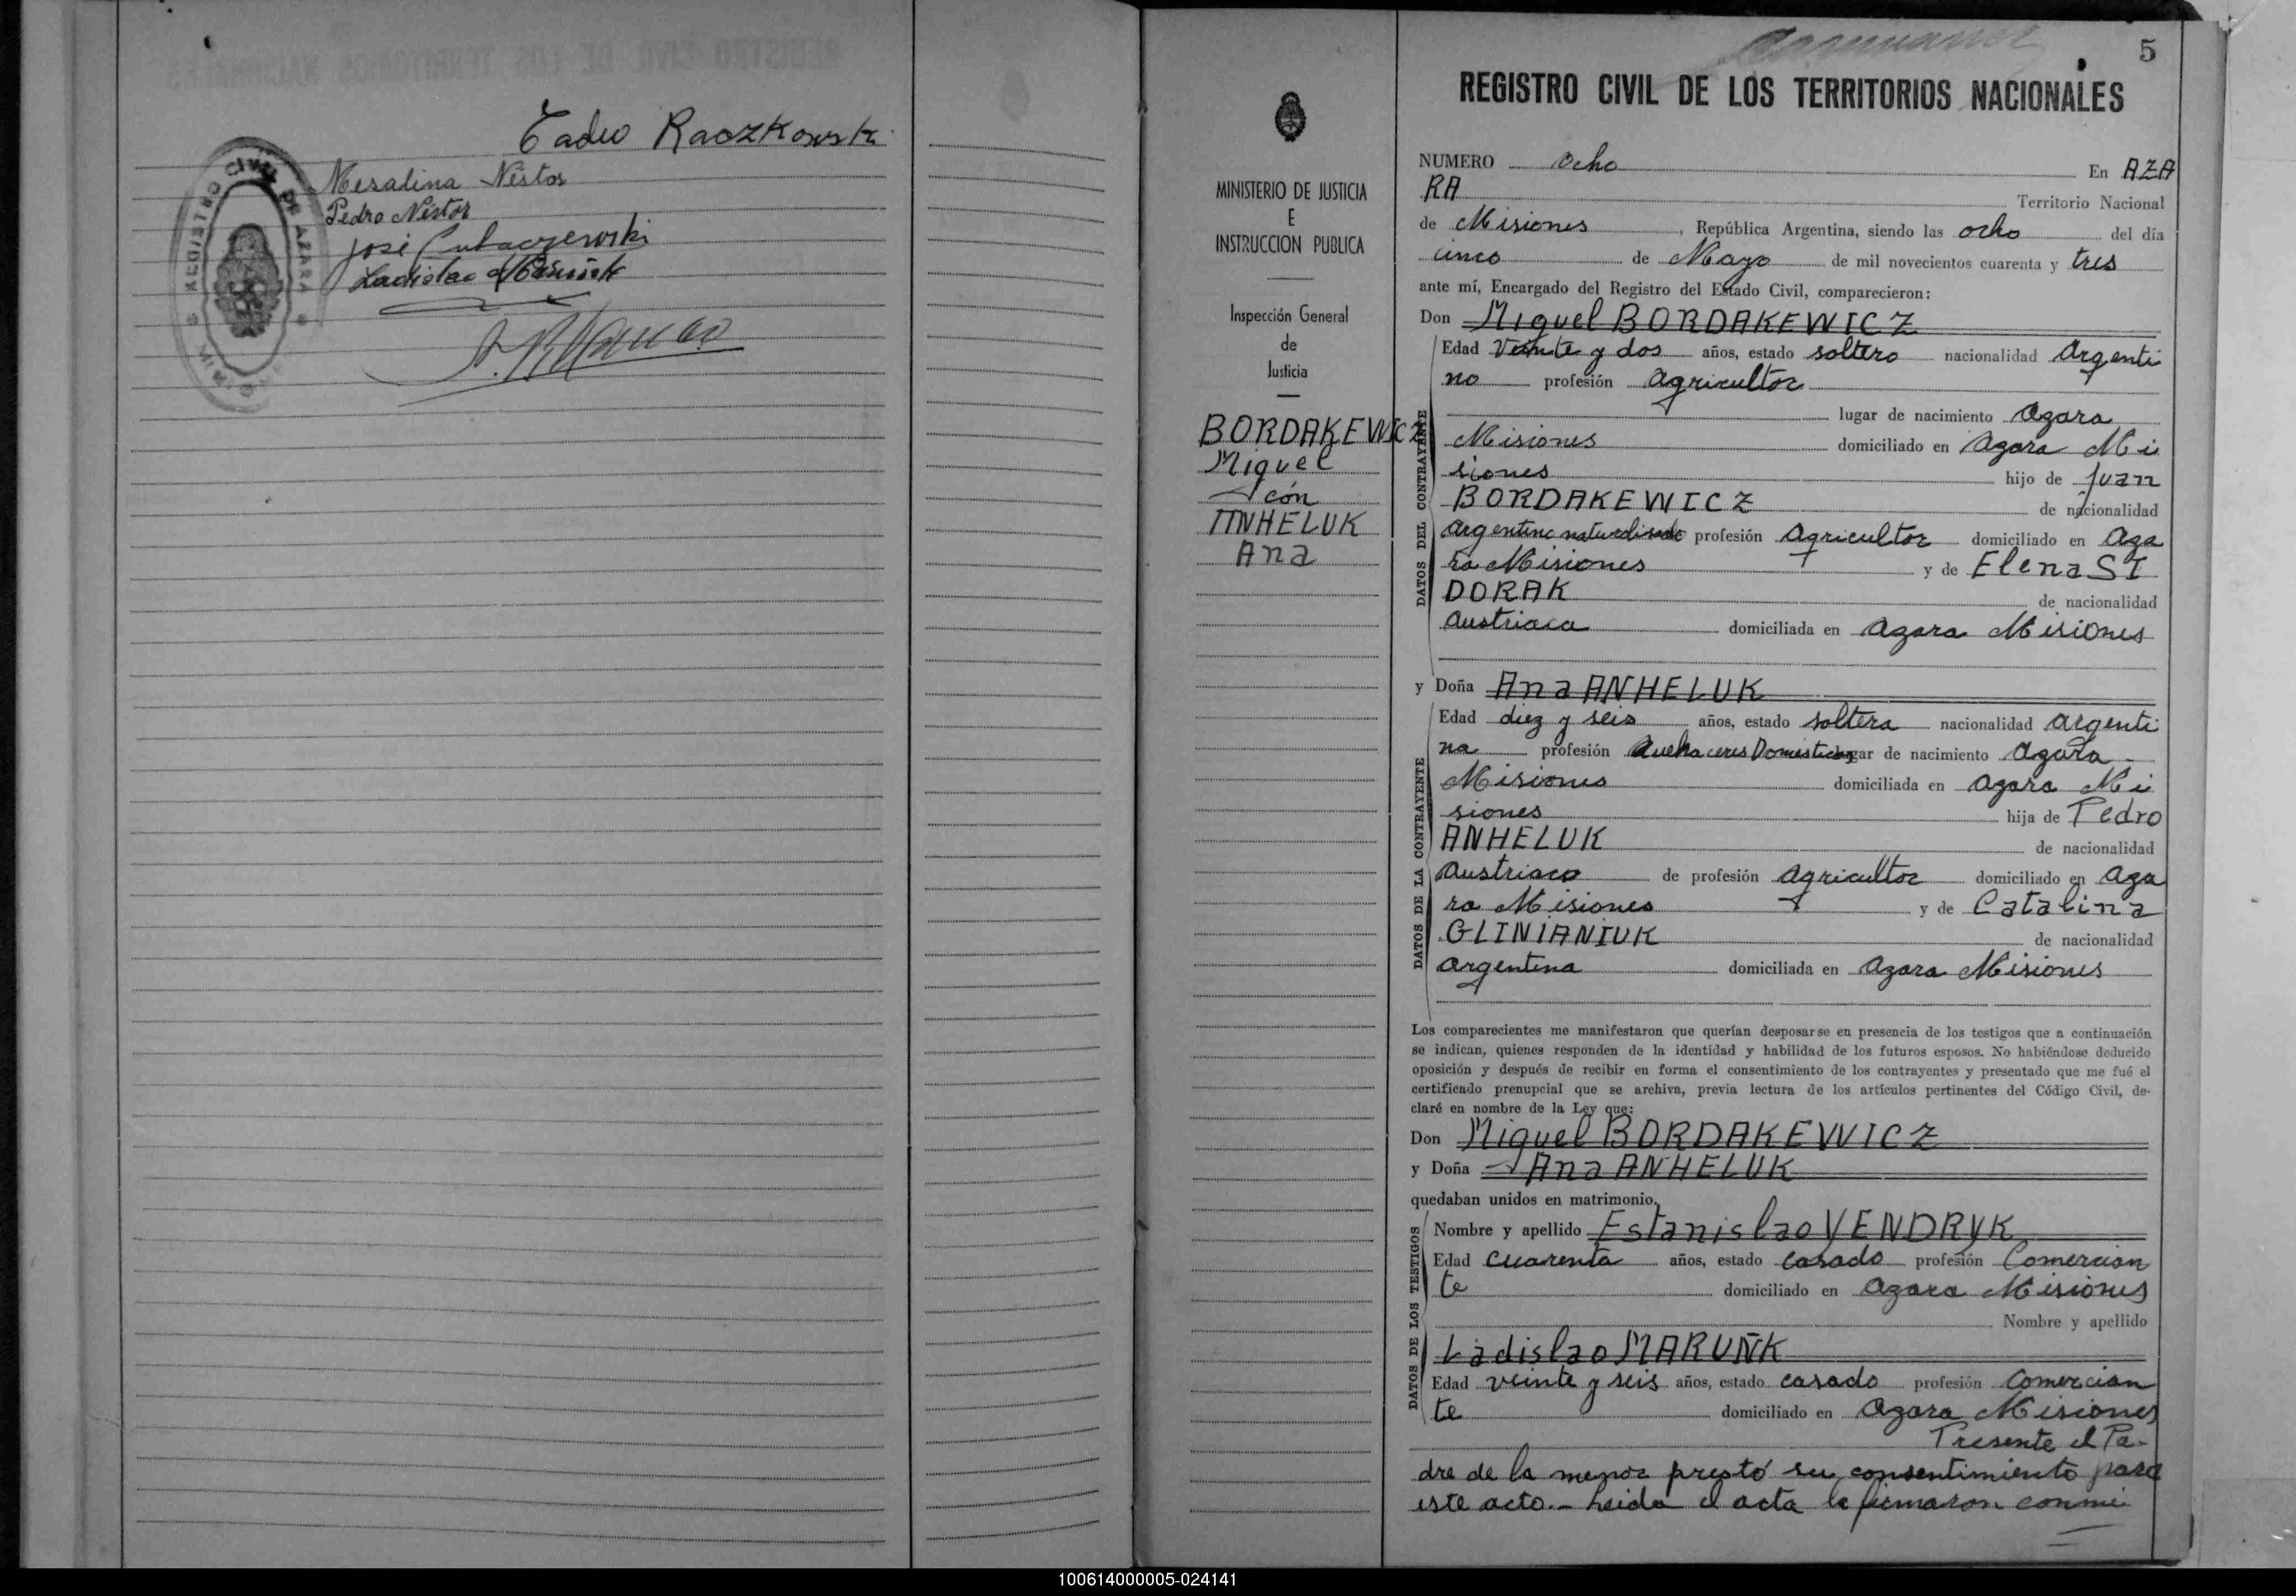 Tadeo Raczkowski
Mesalina Néstor
Pedro Néstor
José
Ladislao
REGISTRO CIVIL DE AZARA
5
REGISTRO CIVIL DE LOS TERRITORIOS NACIONALES
MINISTERIO DE JUSTICIA
E
INSTRUCCION PUBLICA
Inspección General
de
Justicia
BORDAKEWICZ
Miguel
con
ANHELUK
Ana
NUMERO ocho En AZA
RA Territorio Nacional
de Misiones, República Argentina, siendo las ocho del día
cinco de Mayo de mil novecientos cuarenta y tres
ante mí, Encargado del Registro del Estado Civil, comparecieron:
Don Miguel BORDAKEWICZ
DATOS DEL CONTRAYENTE
Edad Veinte y dos años, estado soltero nacionalidad Argenti
no profesión agricultor
lugar de nacimiento Azara
Misiones domiciliado en Azara Mi
siones hijo de Juan
BORDAKEWICZ de nacionalidad
argentino naturalizado profesión Agricultor domiciliado en Aza
ra Misiones y de Elena SI
DORAK de nacionalidad
Austriaca domiciliada en Azara Misiones
y Doña Ana ANHELUK
DATOS DE LA CONTRAYENTE
Edad diez y seis años, estado soltera nacionalidad argenti
na profesión Quehaceres Domesticos lugar de nacimiento Azara
Misiones domiciliada en Azara Mi
siones hija de Pedro
ANHELUK de nacionalidad
Austriaco de profesión Agricultor domiciliado en Aza
ra Misiones y de Catalina
GLINIANIUK de nacionalidad
argentina domiciliada en Azara Misiones
Los comparecientes me manifestaron que querían desposarse en presencia de los testigos que a continuación
se indican, quienes responden de la identidad y habilidad de los futuros esposos. No habiéndose deducido
oposición y después de recibir en forma el consentimiento de los contrayentes y presentado que me fué el
certificado prenupcial que se archiva, previa lectura de los artículos pertinentes del Código Civil, de-
claré en nombre de la Ley que:
Don Miguel BORDAKEWICZ
y Doña Ana ANHELUK
quedaban unidos en matrimonio.
DATOS DE LOS TESTIGOS
Nombre y apellido Estanislao VENDRYK
Edad cuarenta años, estado casado profesión Comercian
te domiciliado en Azara Misiones
Nombre y apellido
Ladislao MARUÑK
Edad veinte y seis años, estado casado profesión Comercian
te domiciliado en Azara Misiones
Presente el Pa-
dre de la menor prestó su consentimiento para
este acto.- Leida el acta la firmaron conmi
100614000005-024141